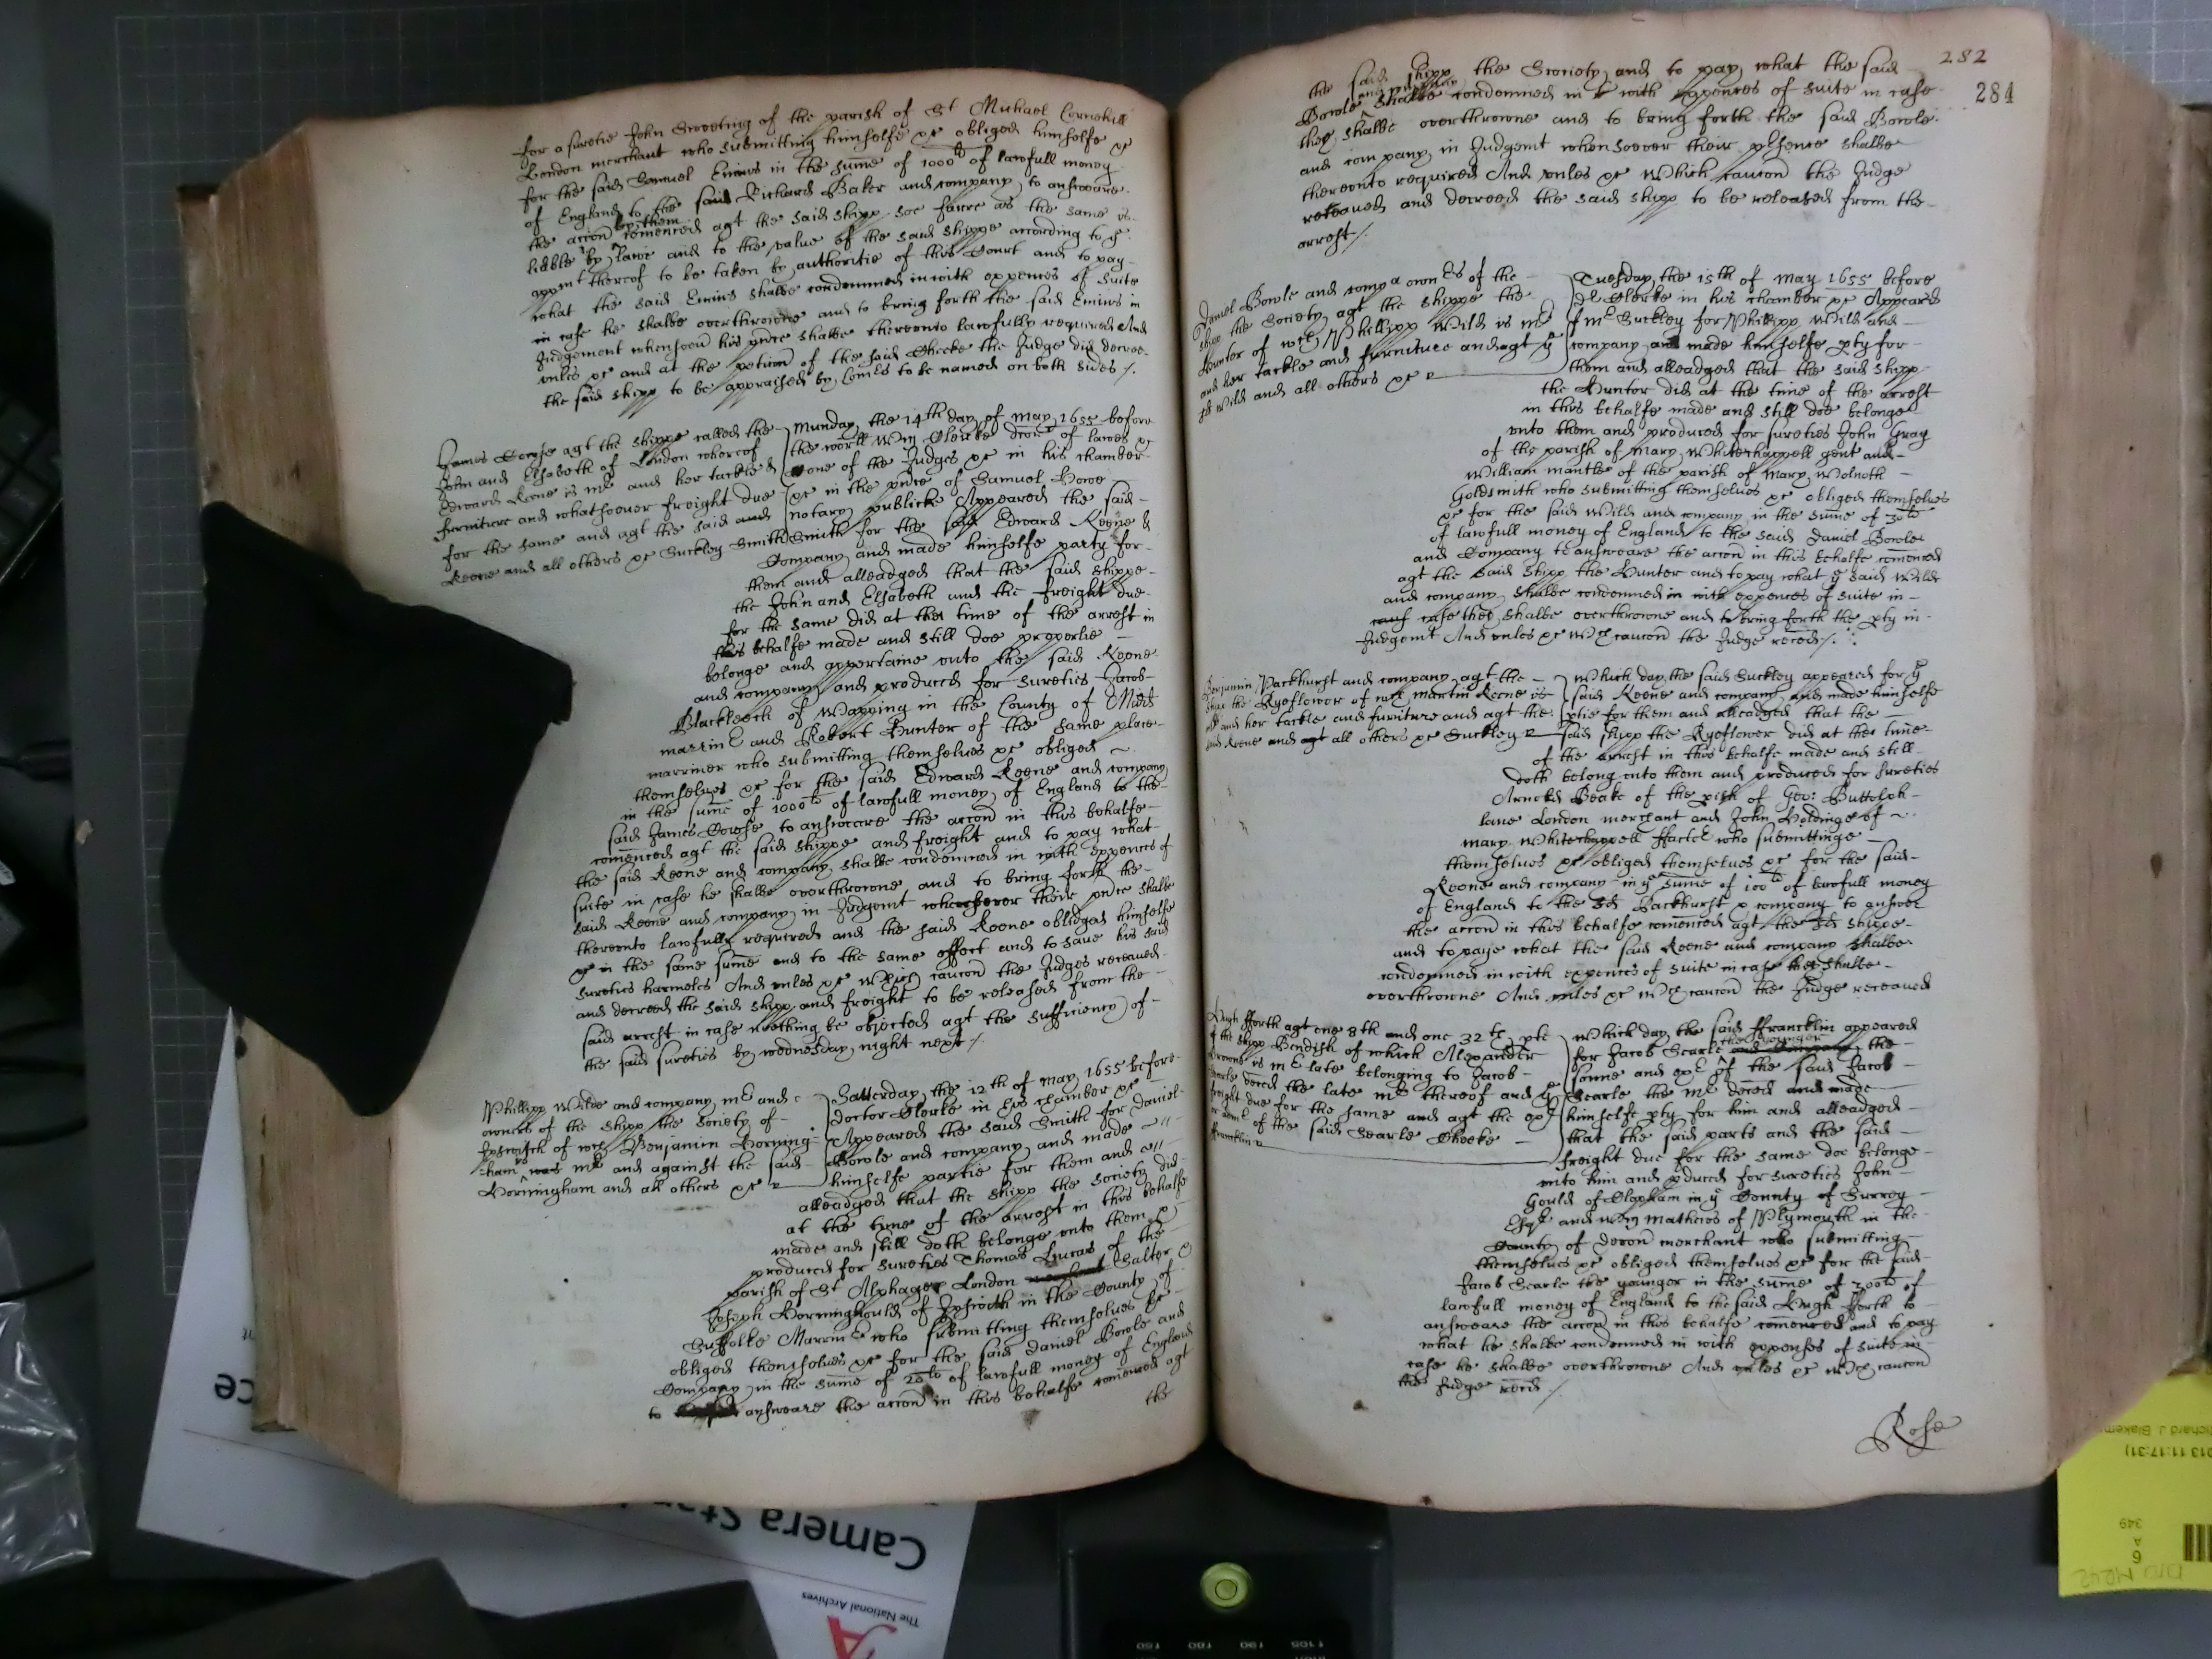 for a suretie John Sweeting of the parish of St Michael Cornehill
London merchant who submitting himselfe xc obliged himselfe xc
for the said Samuel Emins in the sume of 1000li of lawfull money
of England to the said Richard Baker and company to answeare
the accon by them comenced agt the said shipp soe farre as the same is
liable by lawe and to the value of the said shippe according to ye
appmt thereof to be taken by authoritie of this Court and to pay
what the said Emins shalbe condemned in with expences of suite
in case he shalbe overthrowne and to bring forth the said Emins in
Judgement whensoeu his pnce shalbe thereonto lawfully required And
vnles xc and at the peticon of the said Cheeke the Judge did decree
the said shipp to be appraised by Comrs to be named on both sides /.
James Dowse agt the shippe called the
John and Elsabeth of London whereof
Edward Keene is mr and her tackle &
furniture and whatsoever freight due
for the same and agt the said and
Keene and all others xc Suckley Smith
Munday the 14th day of May 1655 before
the worll Wm Clerke doctr of lawes xc
one of the Judges xc in his chamber
xc in the pnce of Samuel Howe
notary publicke Appeared the said
Smith for the said Edward Keene &
Company and made himselfe party for
them and alleadged that the said shippe
the John and Elsabeth and the freight due
for the same did at the time of the arrest in
this behalfe made and still doe properlie
belonge and appertaine vnto the said Keene
and company and produced for sureties Jacob
Blackleech of Wapping in the County of Midd
marrinr and Robert Hunter of the same place
marriner who submitting themselves xc obliged
themselves xc for the said Edward Keene and company
in the sume of 1000li of lawfull money of England to the
said James Dowse to answeare the accon in this behalfe
comenced agt the said shippe and freight and to pay what
the said Keene and company shalbe condemned in with expences of
suite in case he shalbe overthrowne and to bring forth the
said Keene and company in Judgemt whensoever their pnce shalbe
thereonto lawfully required and the said Keene obliged himselfe
xc in the same sume and to the same effect and to save his said
sureties harmeles And vnles xc Which caucon the Judges receaued
and decreed the said shipp and freight to be released from the
said arrest in case nothing be objected agt the sufficiency of
the said sureties by wednesday night next /.
Phillipp Wilde and company mr and
owners of the shipp the Society of
Ipswich of wch Benjamin Horning
ham was mr and against the said
Horningham and all others xc
Satterday the 12th of May 1655 before
doctor Clerke in his chamber xc
Appeared the said Smith for Daniel
Bowle and company and made
himselfe partie for them and
alleadged that the shipp the Society did
at the tyme of the arrest in this behalfe
made and still doth belonge vnto them &
produced for sureties Thomas Lucas of the
parish of St Alphage London Salter &
Joseph Horminghould of Ipswich in the County of
Suffolke Marrinr who submitting themselves xc
obliged themselves xc for the said Daniel Bowle and
Company in the sume of 20li of lawfull money of England
to answeare the accon in this behalfe comenced agt
the
282
284
the said shipp the Society and to pay what the said
Bowle and company shalbe condemned in with expences of suite in case
they shalbe overthrowne and to bring forth the said Bowle
and company in Judgemt whensoever their psence shalbe
thereonto required And vnles xc Which caucon the Judge
receaued and decreed the said shipp to be released from the
arrest /.
Daniel Bowle and comp a ownrs of the
shipp the Society agt the shippe the
Hunter of wch Phillipp Wild is mr
and her tackle and furniture and agt ye
sd Wild and all others xc
Tuesday the 15th of May 1655 before
dr Clerke in his chamber xc Appeared
mr Suckley for Phillipp Wild and
company and made himselfe pty for
them and alleadged that the said shipp
the Hunter did at the time of the arrest
in this behalfe made and still doe belonge
vnto them and produced for sureties John Gray
of the parish of Mary Whitechappell gent and
William Mantle of the parish of Mary Wolnoth
Goldsmith who submitting themselves xc obliged themselves
xc for the said Wild and company in the sume of 30li
of lawfull money of England to the said Daniel Bowle
and Company to answeare the accon in this behalfe comenced
agt the said shipp the Hunter and to pay what ye said Wilde
and company shalbe condemned in with expences of suite in
case they shalbe overthrowne and to bring forth the pty in
Judgemt And vnles xc Wch caucon the Judge reced /.
Benjamin Packhurst and company agt the
shipp the Ryeflower of wch Martin Keene is
mr and her tackle and furniture and agt the
said Keene and agt all others xc Suckley
Which day the said Suckley appeared for ye
said Keene and company and made himselfe
ptie for them and alleadged that the
said shipp the Ryeflower did at the time
of the arrest in this behalfe made and still
doth belong vnto them and produced for sureties
Arnold Beake of the pish of Geo: Buttolph
lane London merchant and John Holdinge of
mary Whitechappell ffactor who submittinge
themselves xc obliged themselves xc for the said
Keene and company in ye sume of 100li of lawfull money
of England to the sd Packhurst & company to answer
the accon in this behalfe comenced agt the sd shippe
and to paye what the said Keene and company shalbe
condemned in with expences of suite in case they shalbe
overthrowne And vnles xc Wch caucon the Judge receaued
Hugh fforth agt one 8th and one 32th pte
of the shipp Bendish of which Alexander
Browne is mr late belonging to Jacob
Searle deced the late mr thereof and ye
freight due for the same and agt the exr
or admr of the said Searle Cheeke
ffrancklin
Which day the said ffrancklin appeared
for Jacob Searle the younger the
sonne and exr of the said Jacob
Searle the mr deced and made
himselfe pty for him and alleadged
that the said parts and the said
freight due for the same doe belonge
vnto him and pduced for sureties John
Gould of Clapham in ye County of Surrey
Esqr and Wm Mathews of Plymouth in the
County of Devon merchant who submitting
themselves xc obliged themselves xc for the said
Jacob Searle the younger in the sume of 300li of
lawfull money of England to the said Hugh fforth to
answeare the accon in this behalfe comenced and to pay
what he shalbe condemned in with expenses of suite in
case he shalbe overthrowne And vnles xc Wch caucon
the Judge recd /.
Rose
Camera Sta
The National Archives